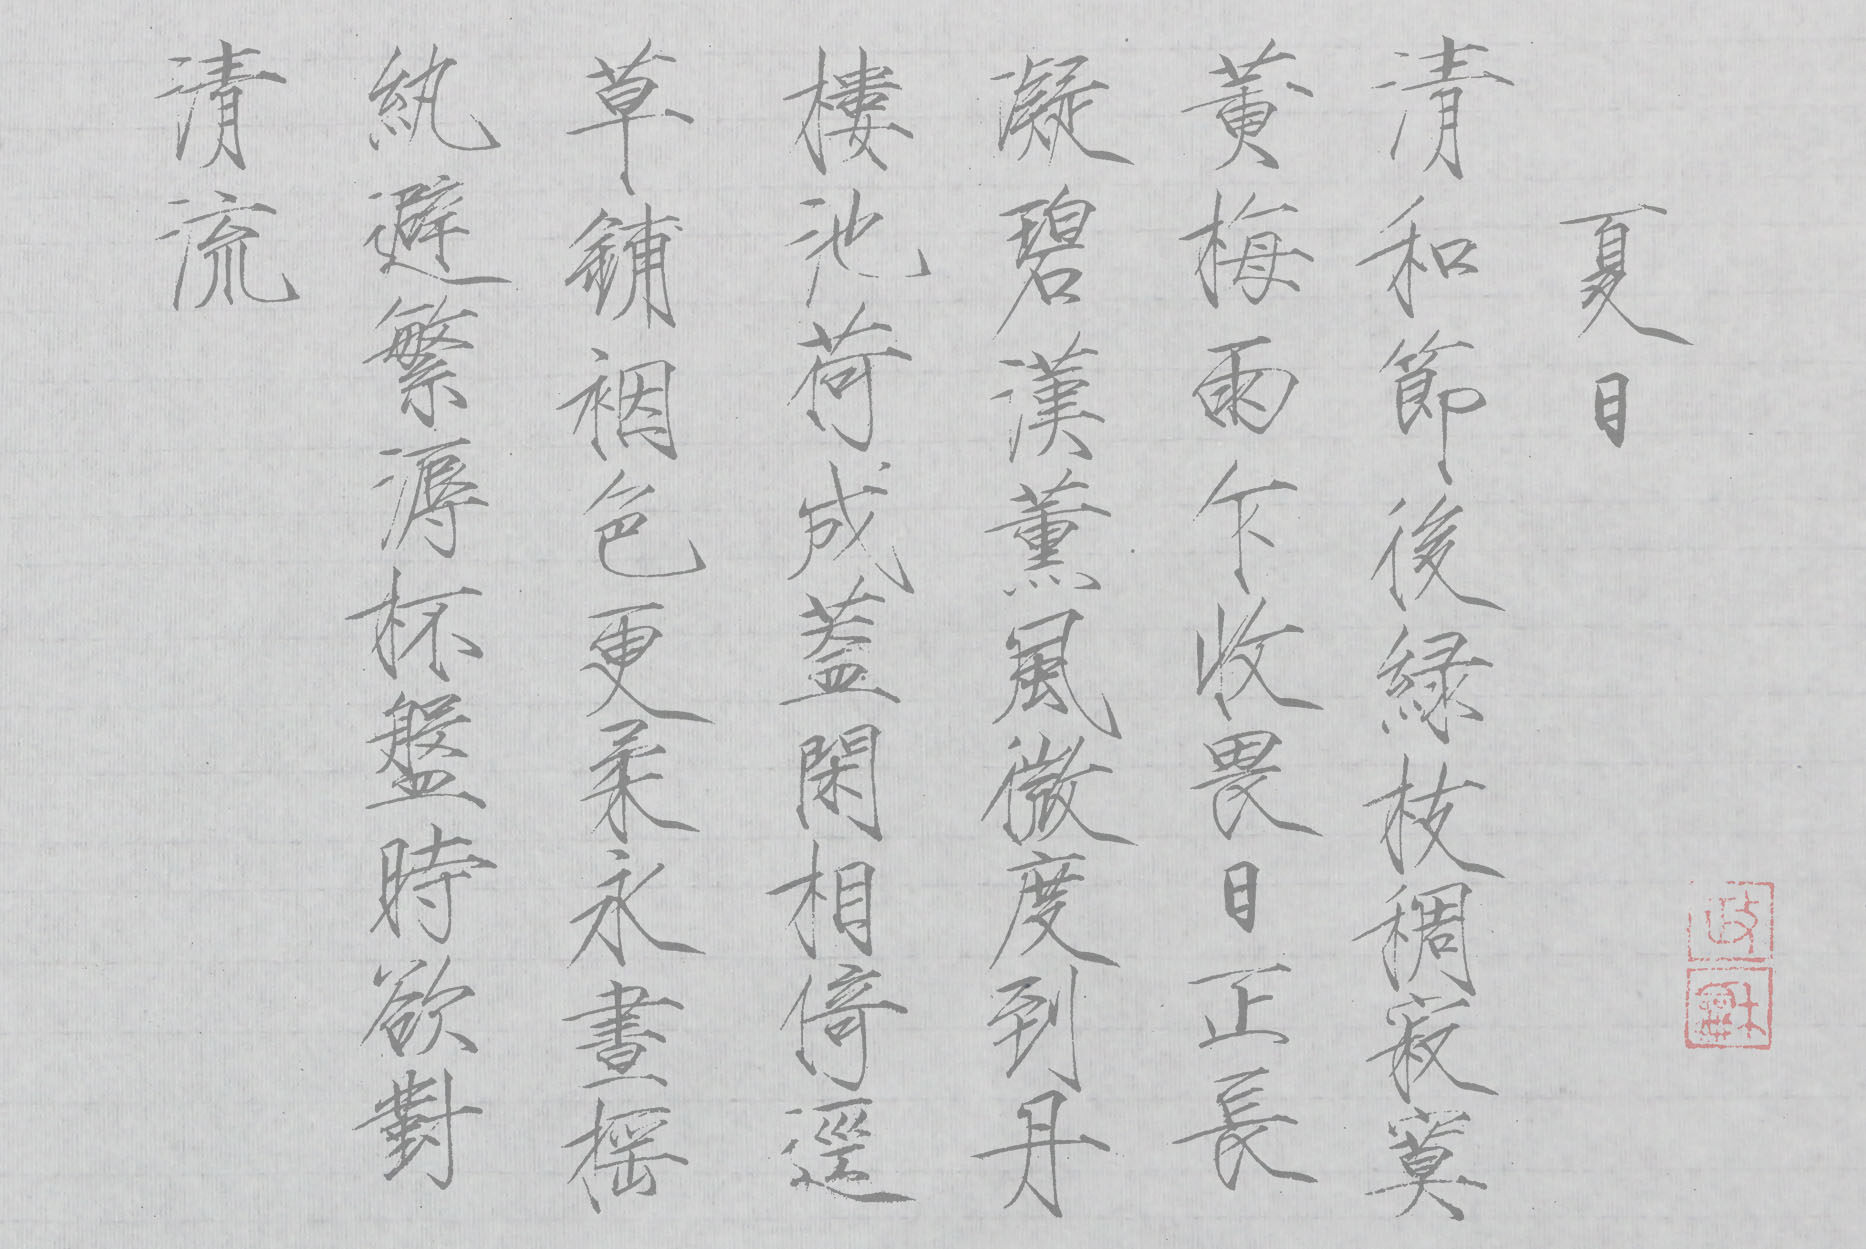 夏日
清和節後緑枝稠寂寞
黄梅雨乍收畏日正長
凝碧漢薰風微度到丹
樓池荷成蓋閑相倚逕
草鋪裀色更柔永晝摇
紈避繁溽杯盤時欲對
清流